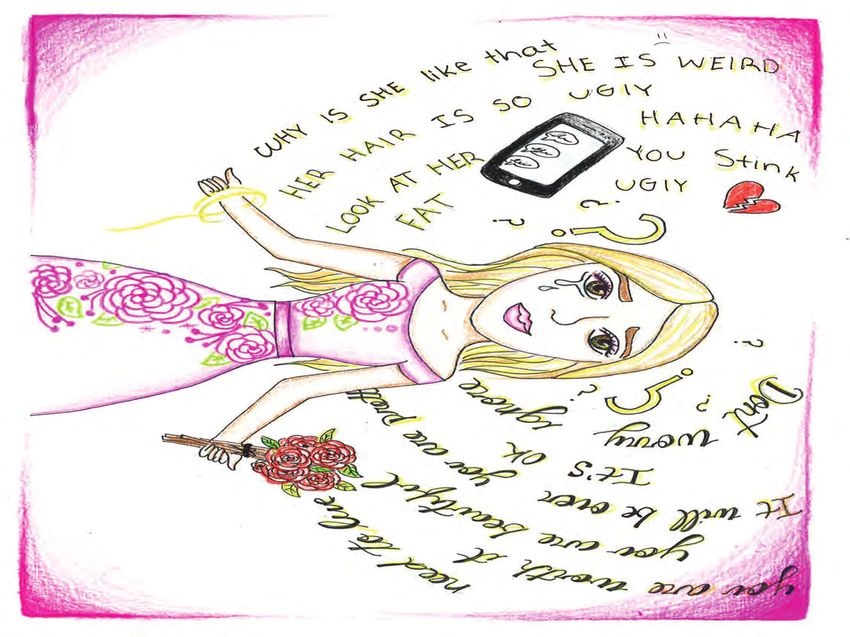 WHY IS SHE like that
SHE IS WEIRD
HER HAIR IS SO UGlY
HAHAHA
LOOK AT HER
FAT
YOU Stink
UGlY
?
?
?
?
Don't worry
?
?
?
?
It's ok ignore
It will be over you are pretty
you are beautiful
you are worth it need to live